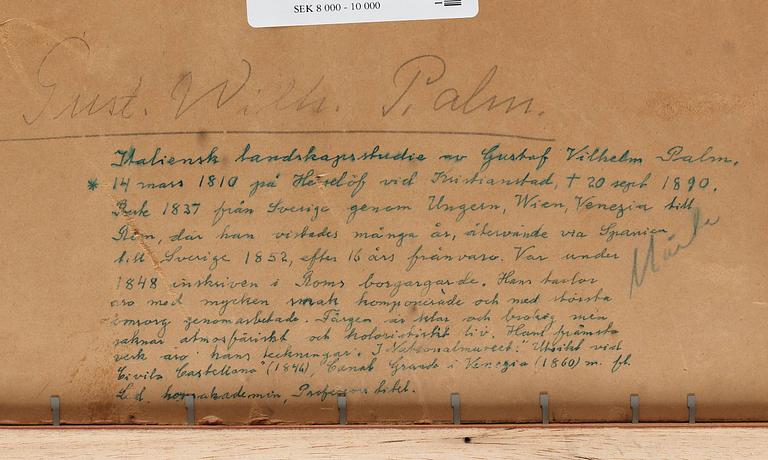 SEK 8 000 - 10 000
Gust. Wilh. Palm.
Italiensk landskapsstudie av Gustaf Vilhelm Palm.
* 14 mars 1810 på vid Kristianstad, † 20 sept 1890.
1837 från Sverige genom Ungern, Wien, Venezia till
Rom, där han vistades många år, återvände via Spanien
till Sverige 1852, efter 16 års frånvaro. Var under
1848 inskriven i Roms borgargarde. Hans tavlor
äro med mycken smak komponerade och med största
omsorg genomarbetade. Färgen är klar och men
saknar atmosfäriskt och koloristiskt liv. Hans främsta
verk äro hans teckningar. I Nationalmuseet: "Utsikt vid
Civita Castellana" (1844), Canal Grande i Venezia (1860) m. fl.
Led. konstakademin, Professors titel.